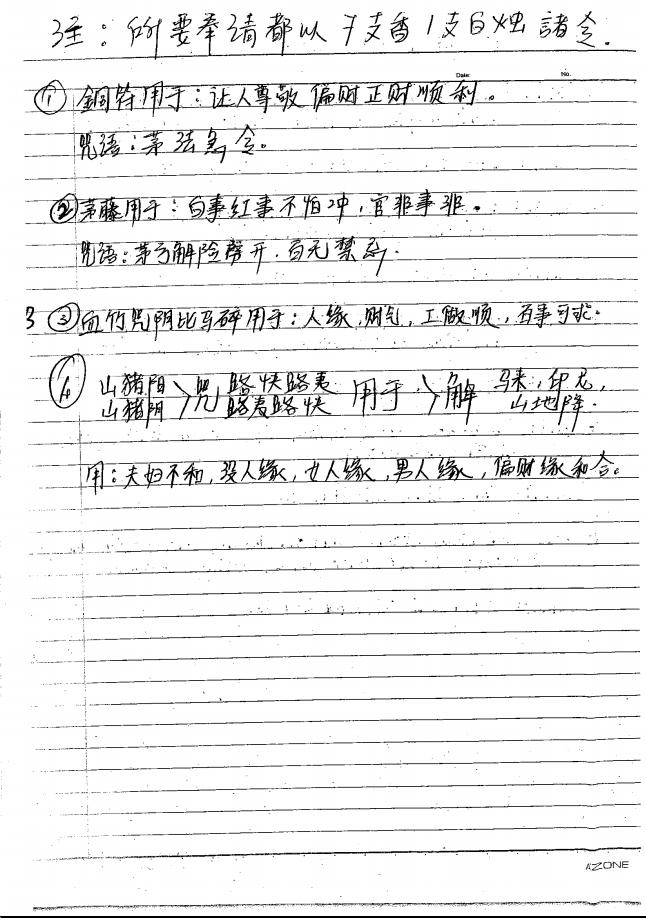 注：所要奉请都以7支香1支白烛諸令.
Date: No.
① 銅符用于：让人尊敬 偏财正财顺利。
咒语：茅法急令。
② 茅藤用于：白事红事不怕冲，官非事非。
咒语：茅弓解险劈开.百无禁忌.
3 ③ 血竹咒阴比马碎用于：人缘,财气,工做顺,百事可求.
4 山猪阳 > 咒 路快路夷 用于 > 解 马来,印尼,
山猪阴 路夷路快 山地降.
用：夫妇不和,没人缘,女人缘,男人缘,偏财缘和合。
ZONE